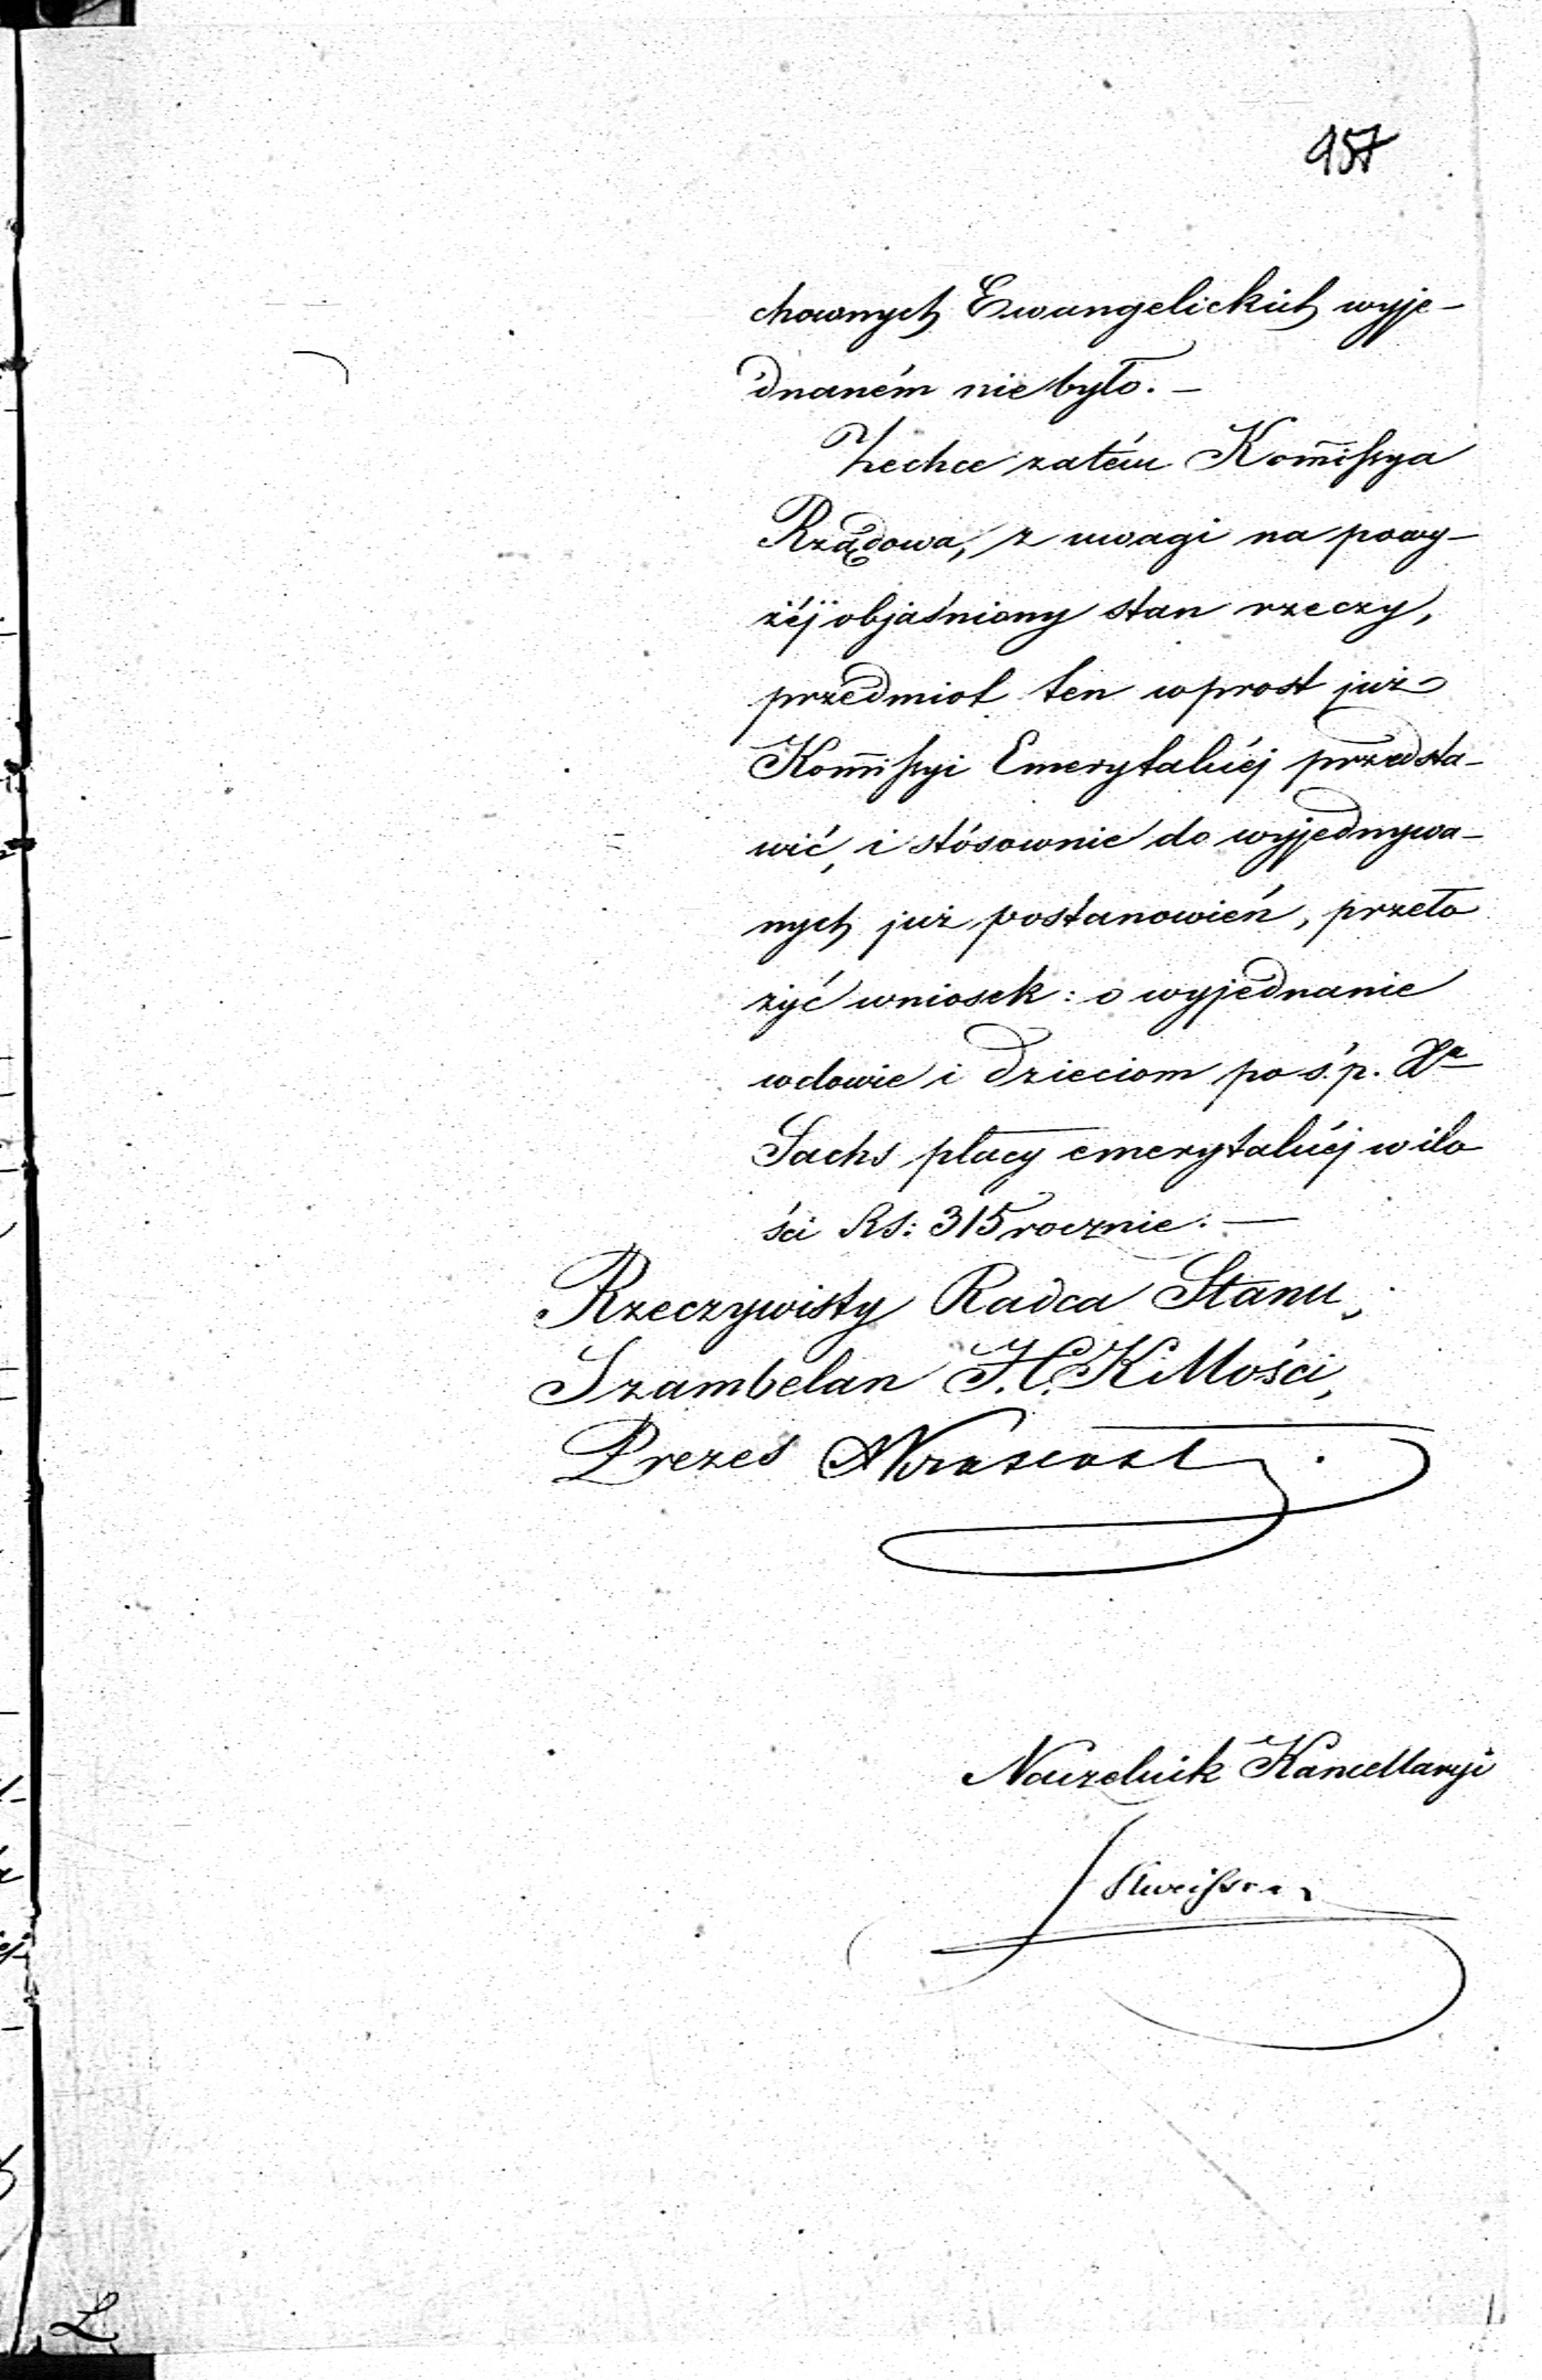 957
chownych Ewangelickich wyje-
dnaném nie było. -
Zechce zatém Kom̄issya
Rządowa, z uwagi na powy-
żéj objaśniony stan rzeczy,
przedmiot ten wprost już
Kom̄issyi Emerytalnéj przedsta-
wić, i stósownie do wyjednywa-
nych już postanowień, przeło
żyć wniosek: o wyjednanie
wdowie i dzieciom po ś.p. Xa
Sachs płacy emerytalnéj w ilo
ści Rs: 315 rocznie. -
Rzeczywisty Radca Stanu,
Szambelan J.C.K Mości,
Prezes
Naczelnik Kancellaryi